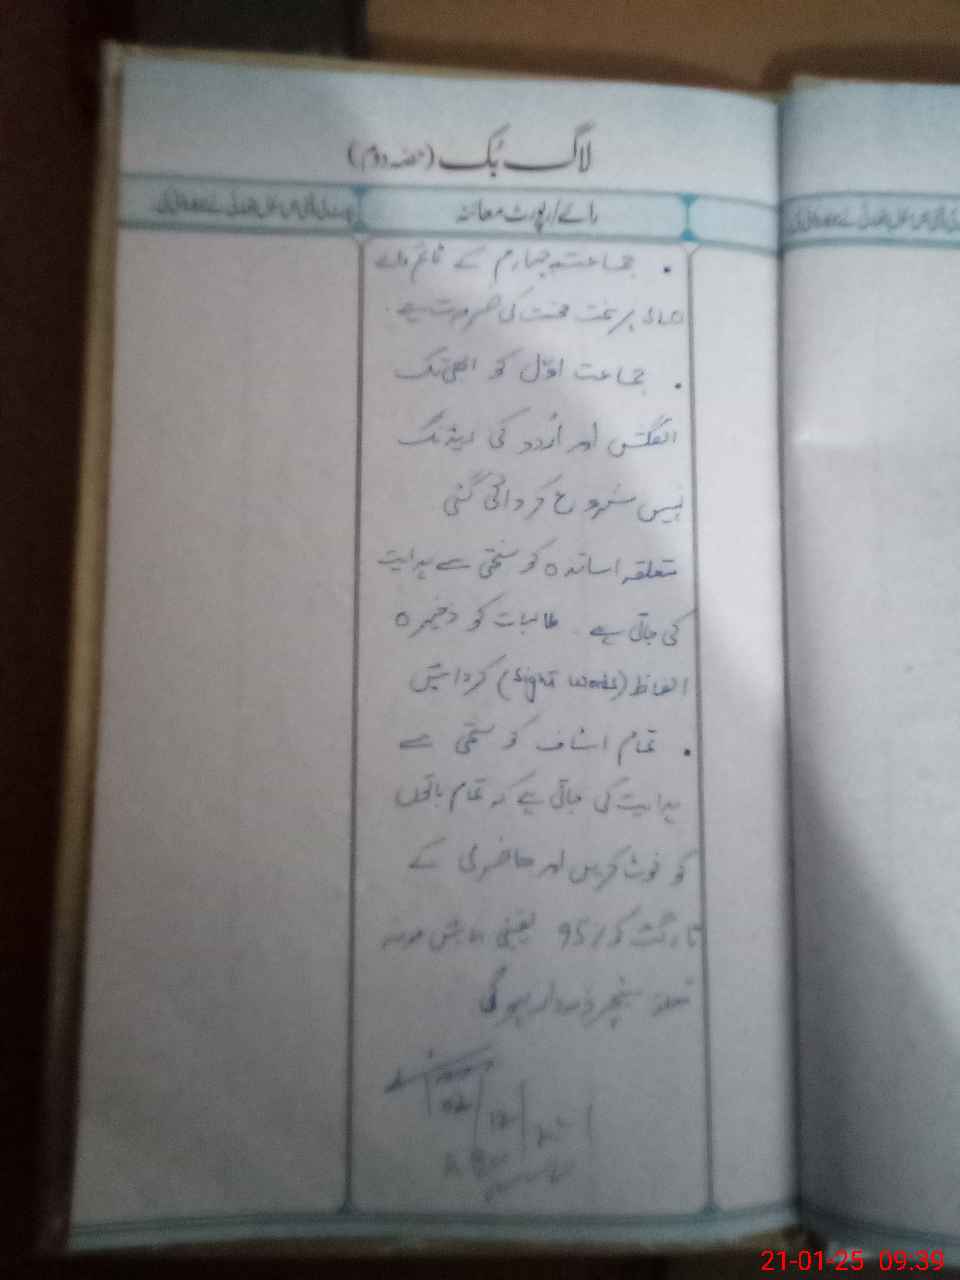 لاگ بک (حصہ دوم)
رائے/رپورٹ معائنہ
• جماعت چہارم کے
پر سخت محنت کی ضرورت ہے۔
• جماعت اوّل کو ابھی تک
انگلش اور اُردو کی ریڈنگ
نہیں شروع کروائی گئی
متعلقہ اساتذہ کو سختی سے ہدایت
کی جاتی ہے۔ طالبات کو ذخیرہ
الفاظ (Sight words) کروائیں
• تمام اسٹاف کو سختی سے
ہدایت کی جاتی ہے کہ تمام باتوں
کو نوٹ کریں اور حاضری کے
ٹارگٹ کو 95٪ یقینی بنائیں ورنہ
متعلقہ ٹیچر ذمہ دار ہوگی
21-01-25 09:39